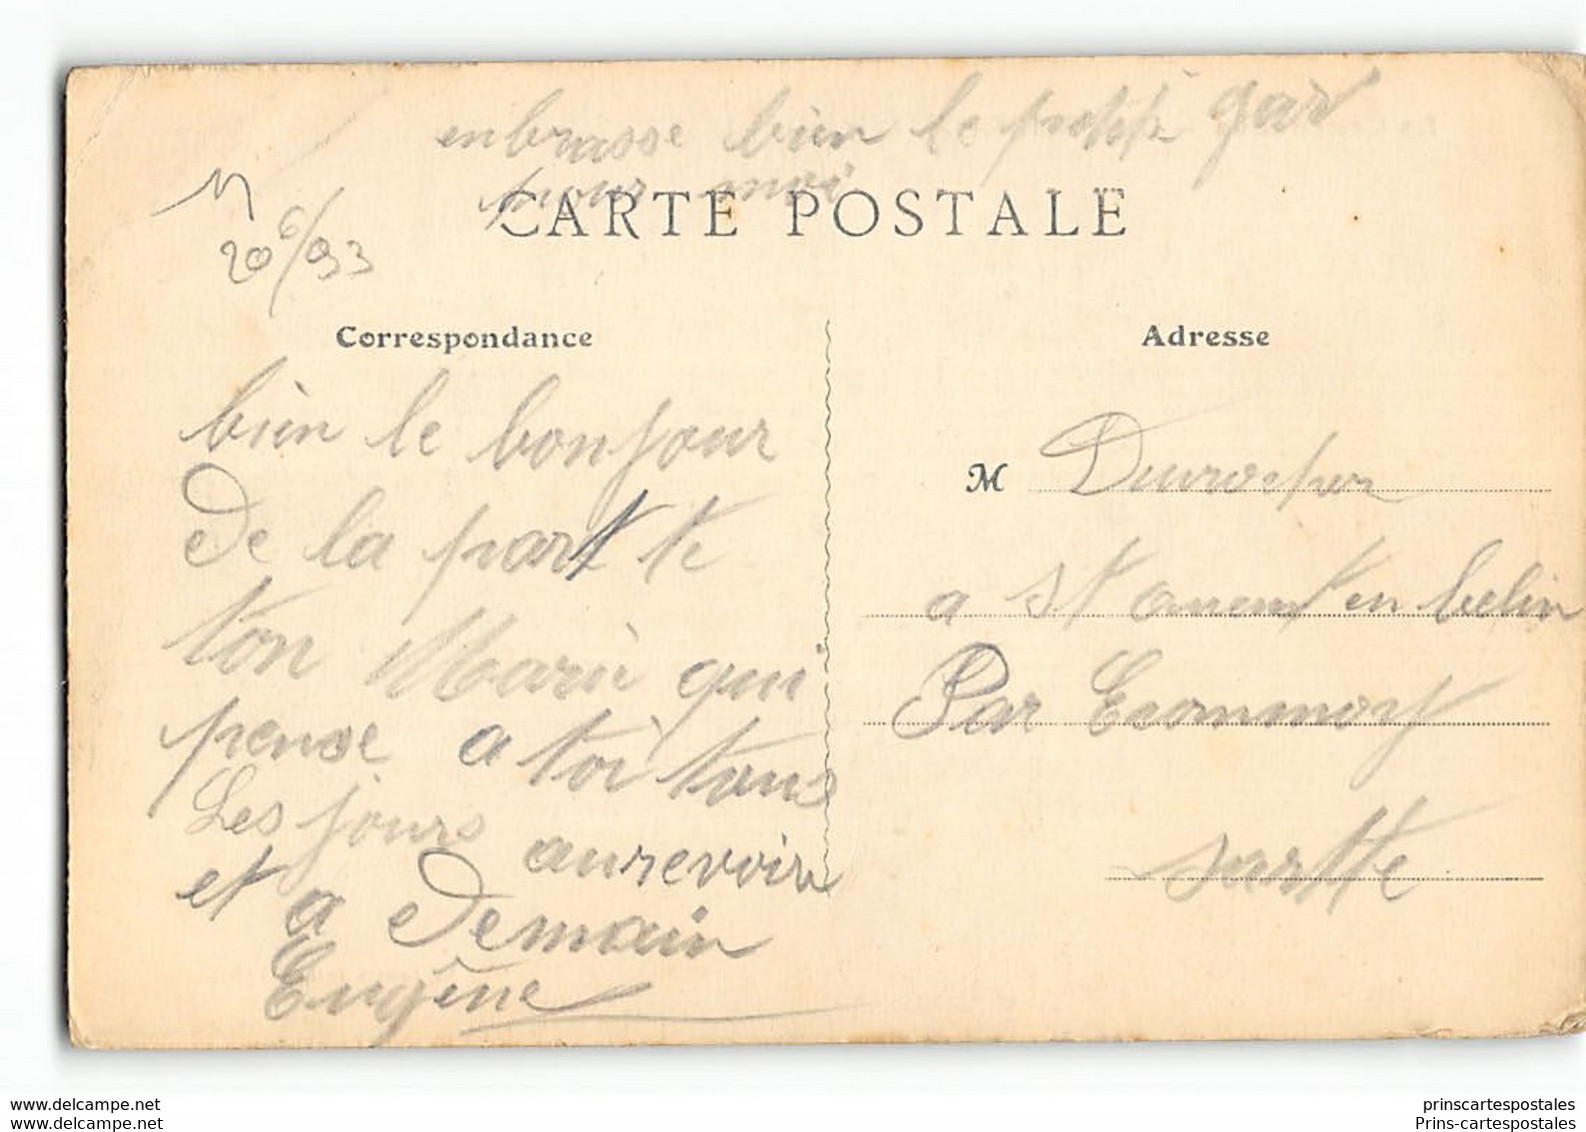 enbrasse bien le petit gar
pour moi
CARTE POSTALE
M
20 6/93
Correspondance
bien le bonjour
De la part te
ton Marie qui
pense a toi tous
Les jours aurevoir
et a Demain
Eugêne
Adresse
M Durocher
a St ouent en belin
Par Ecommoy
Sartte
www.delcampe.net
www.delcampe.net
prinscartespostales
Prins-cartespostales